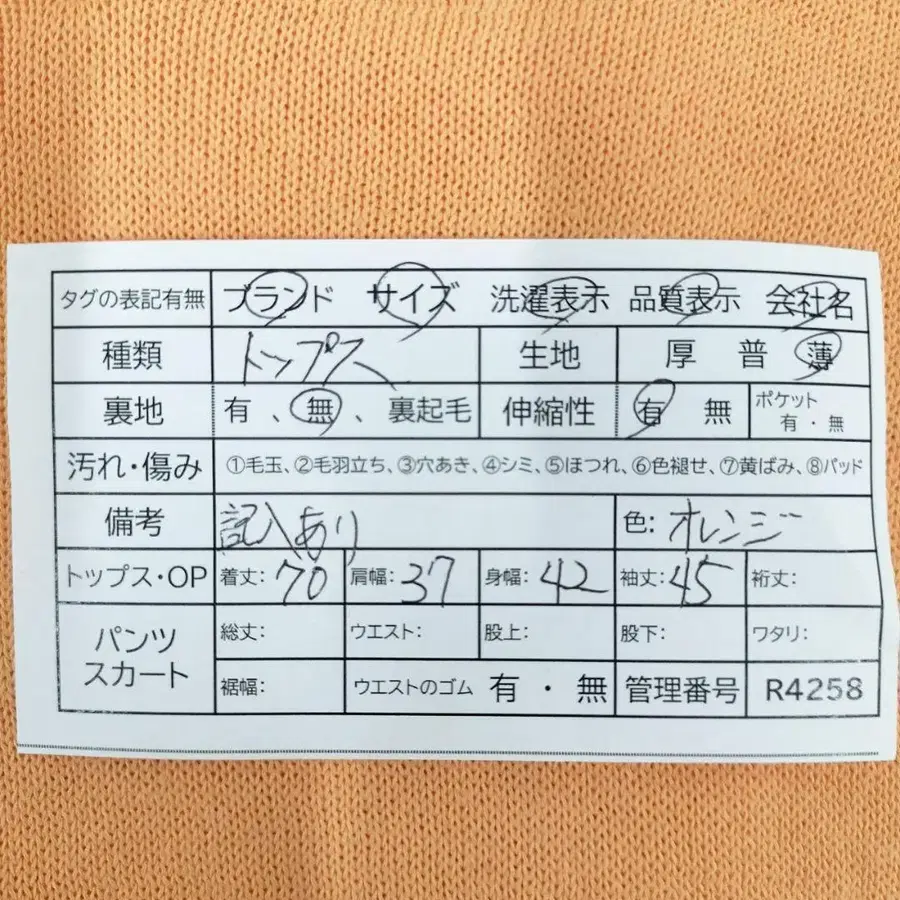 タグの表記有無 ブランド サイズ 洗濯表示 品質表示 会社名
種類 トップス 生地 厚 普 薄
裏地 有、無、裏起毛 伸縮性 有 無 ポケット 有・無
汚れ・傷み ①毛玉、②毛羽立ち、③穴あき、④シミ、⑤ほつれ、⑥色褪せ、⑦黄ばみ、⑧パッド
備考 記入あり 色: オレンジ
トップス・OP 着丈: 70 肩幅: 37 身幅: 42 袖丈: 45 裄丈:
パンツ スカート 総丈: ウエスト: 股上: 股下: ワタリ:
裾幅: ウエストのゴム 有・無 管理番号 R4258